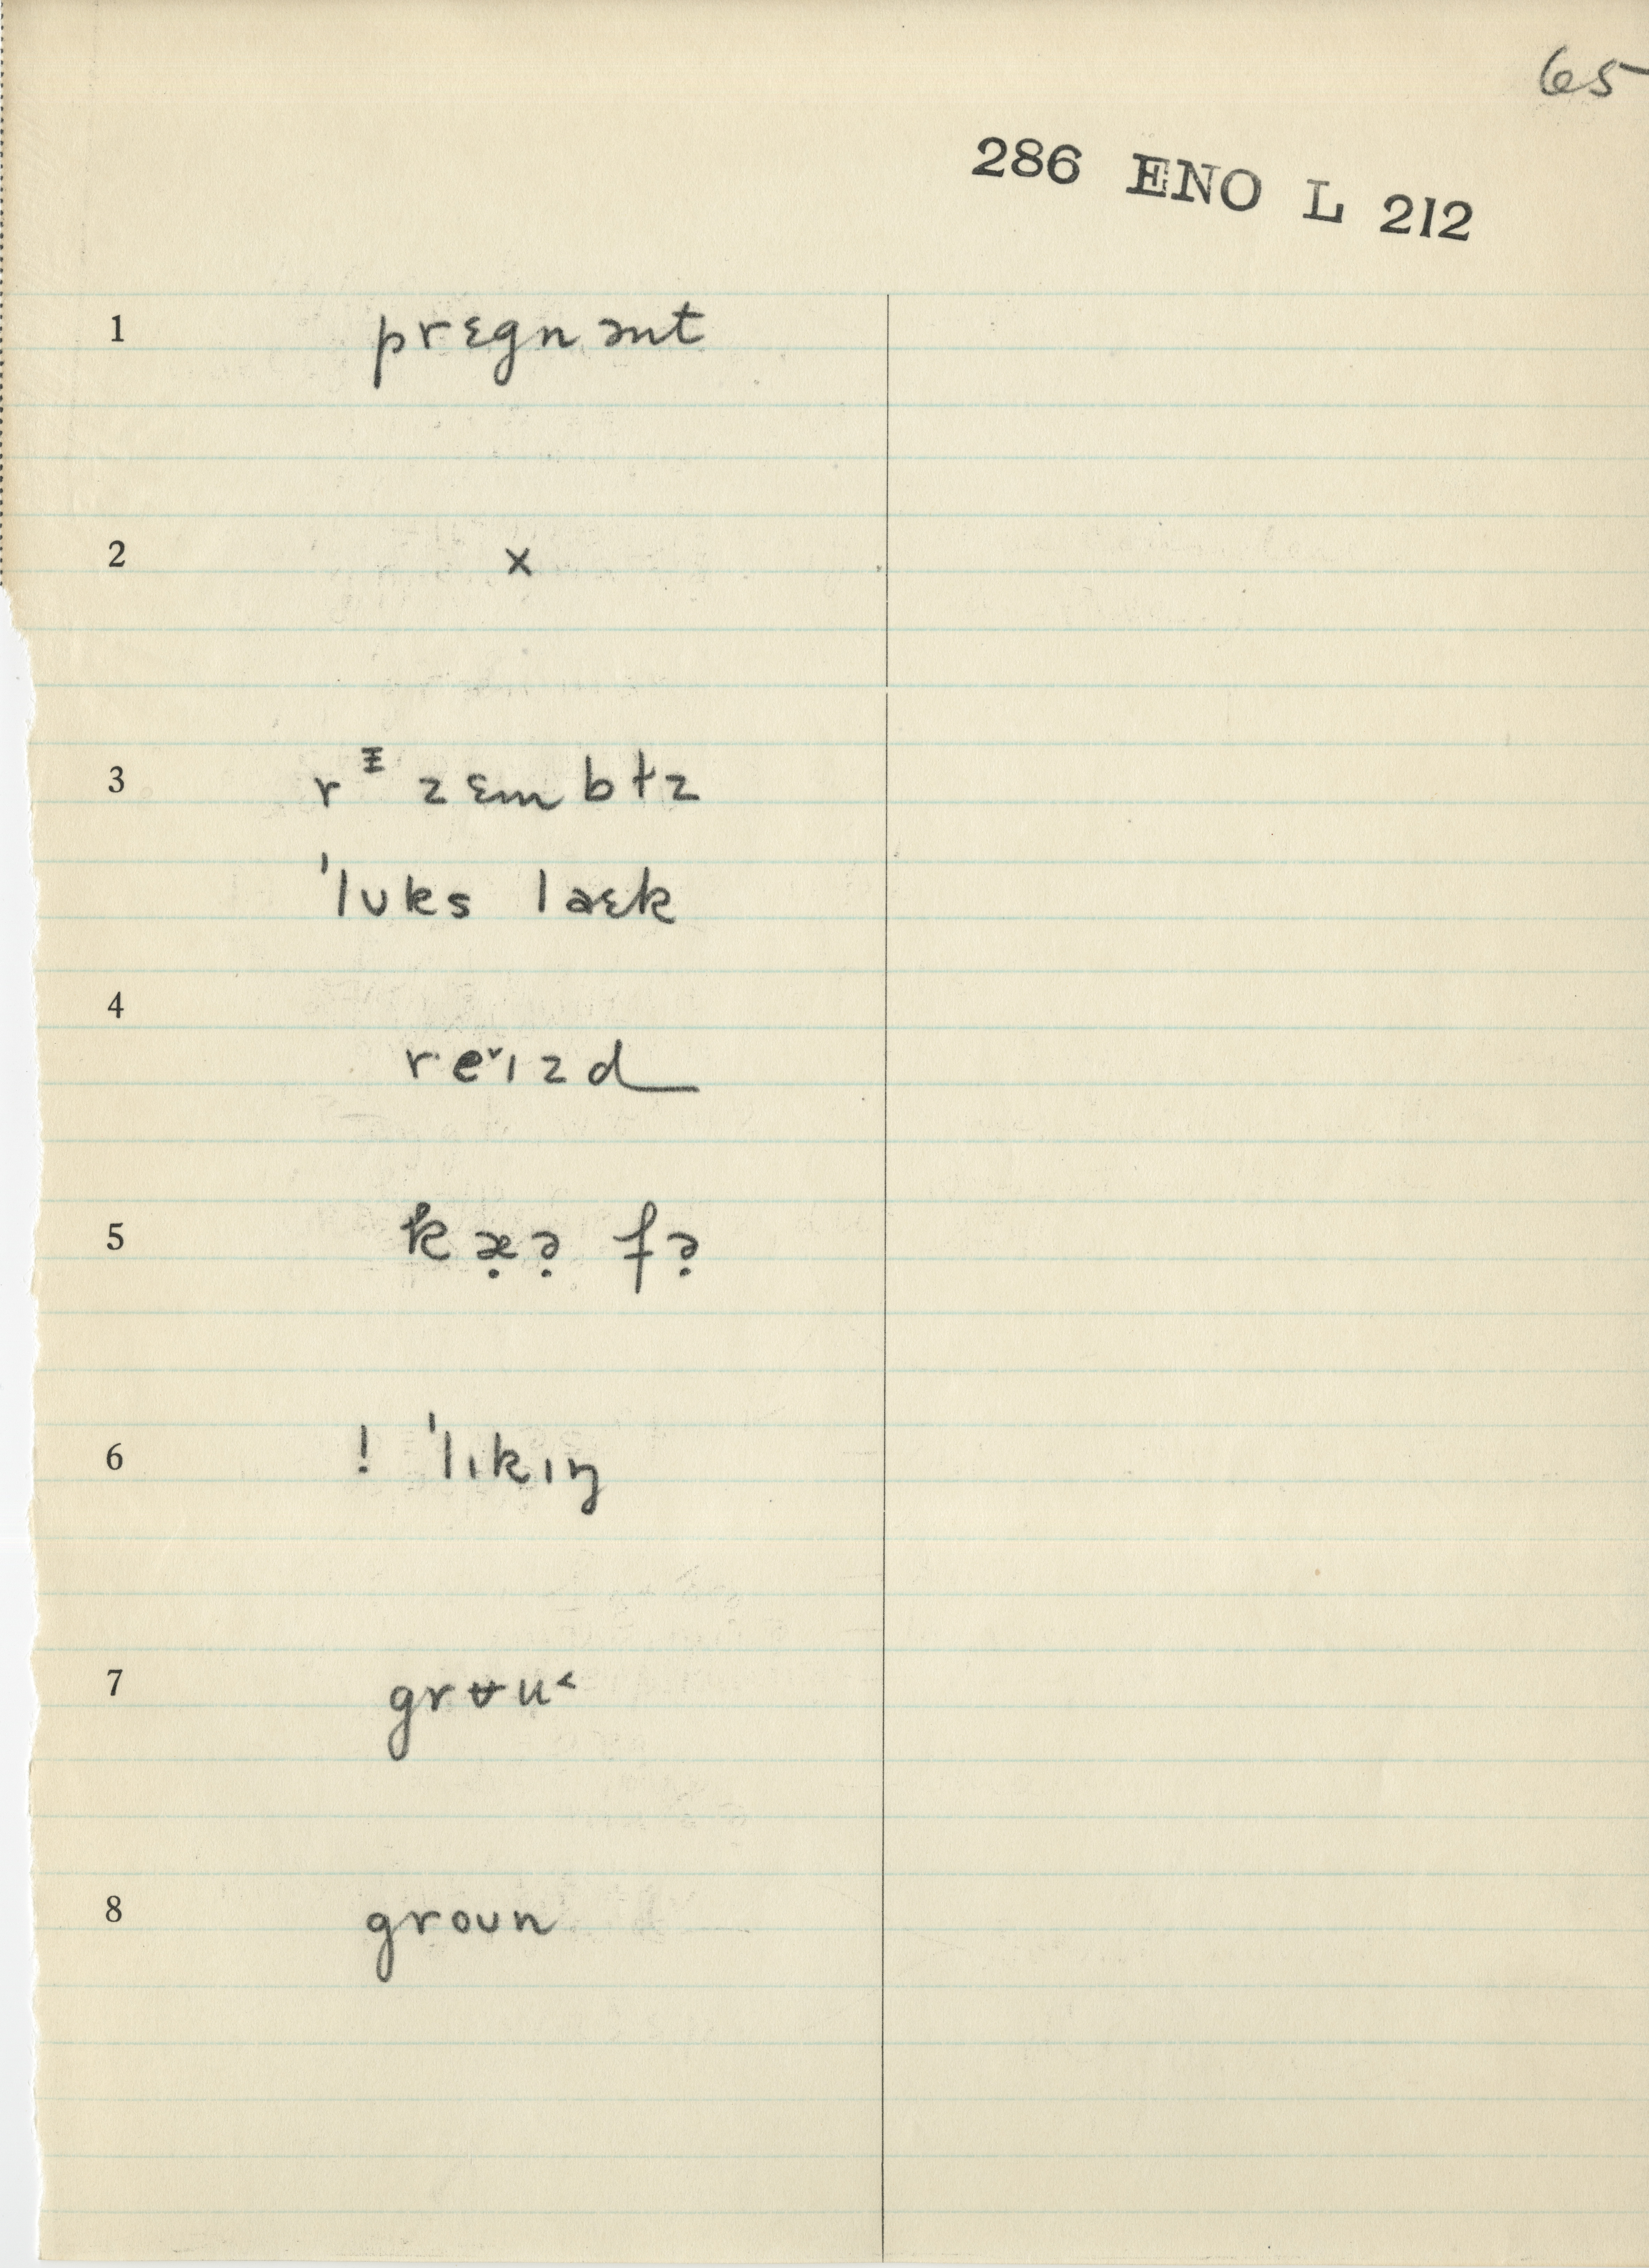 65
286 ENO L 212
1 prɛgnənt
2 x
3 rᵻzɛmbɫz
'lʊks laɛk
4 re˅ɪzd
5 kæ̣ə̣fə̣
6 ! 'lɪkɪŋ
7 grʉu˂
8 groʊn